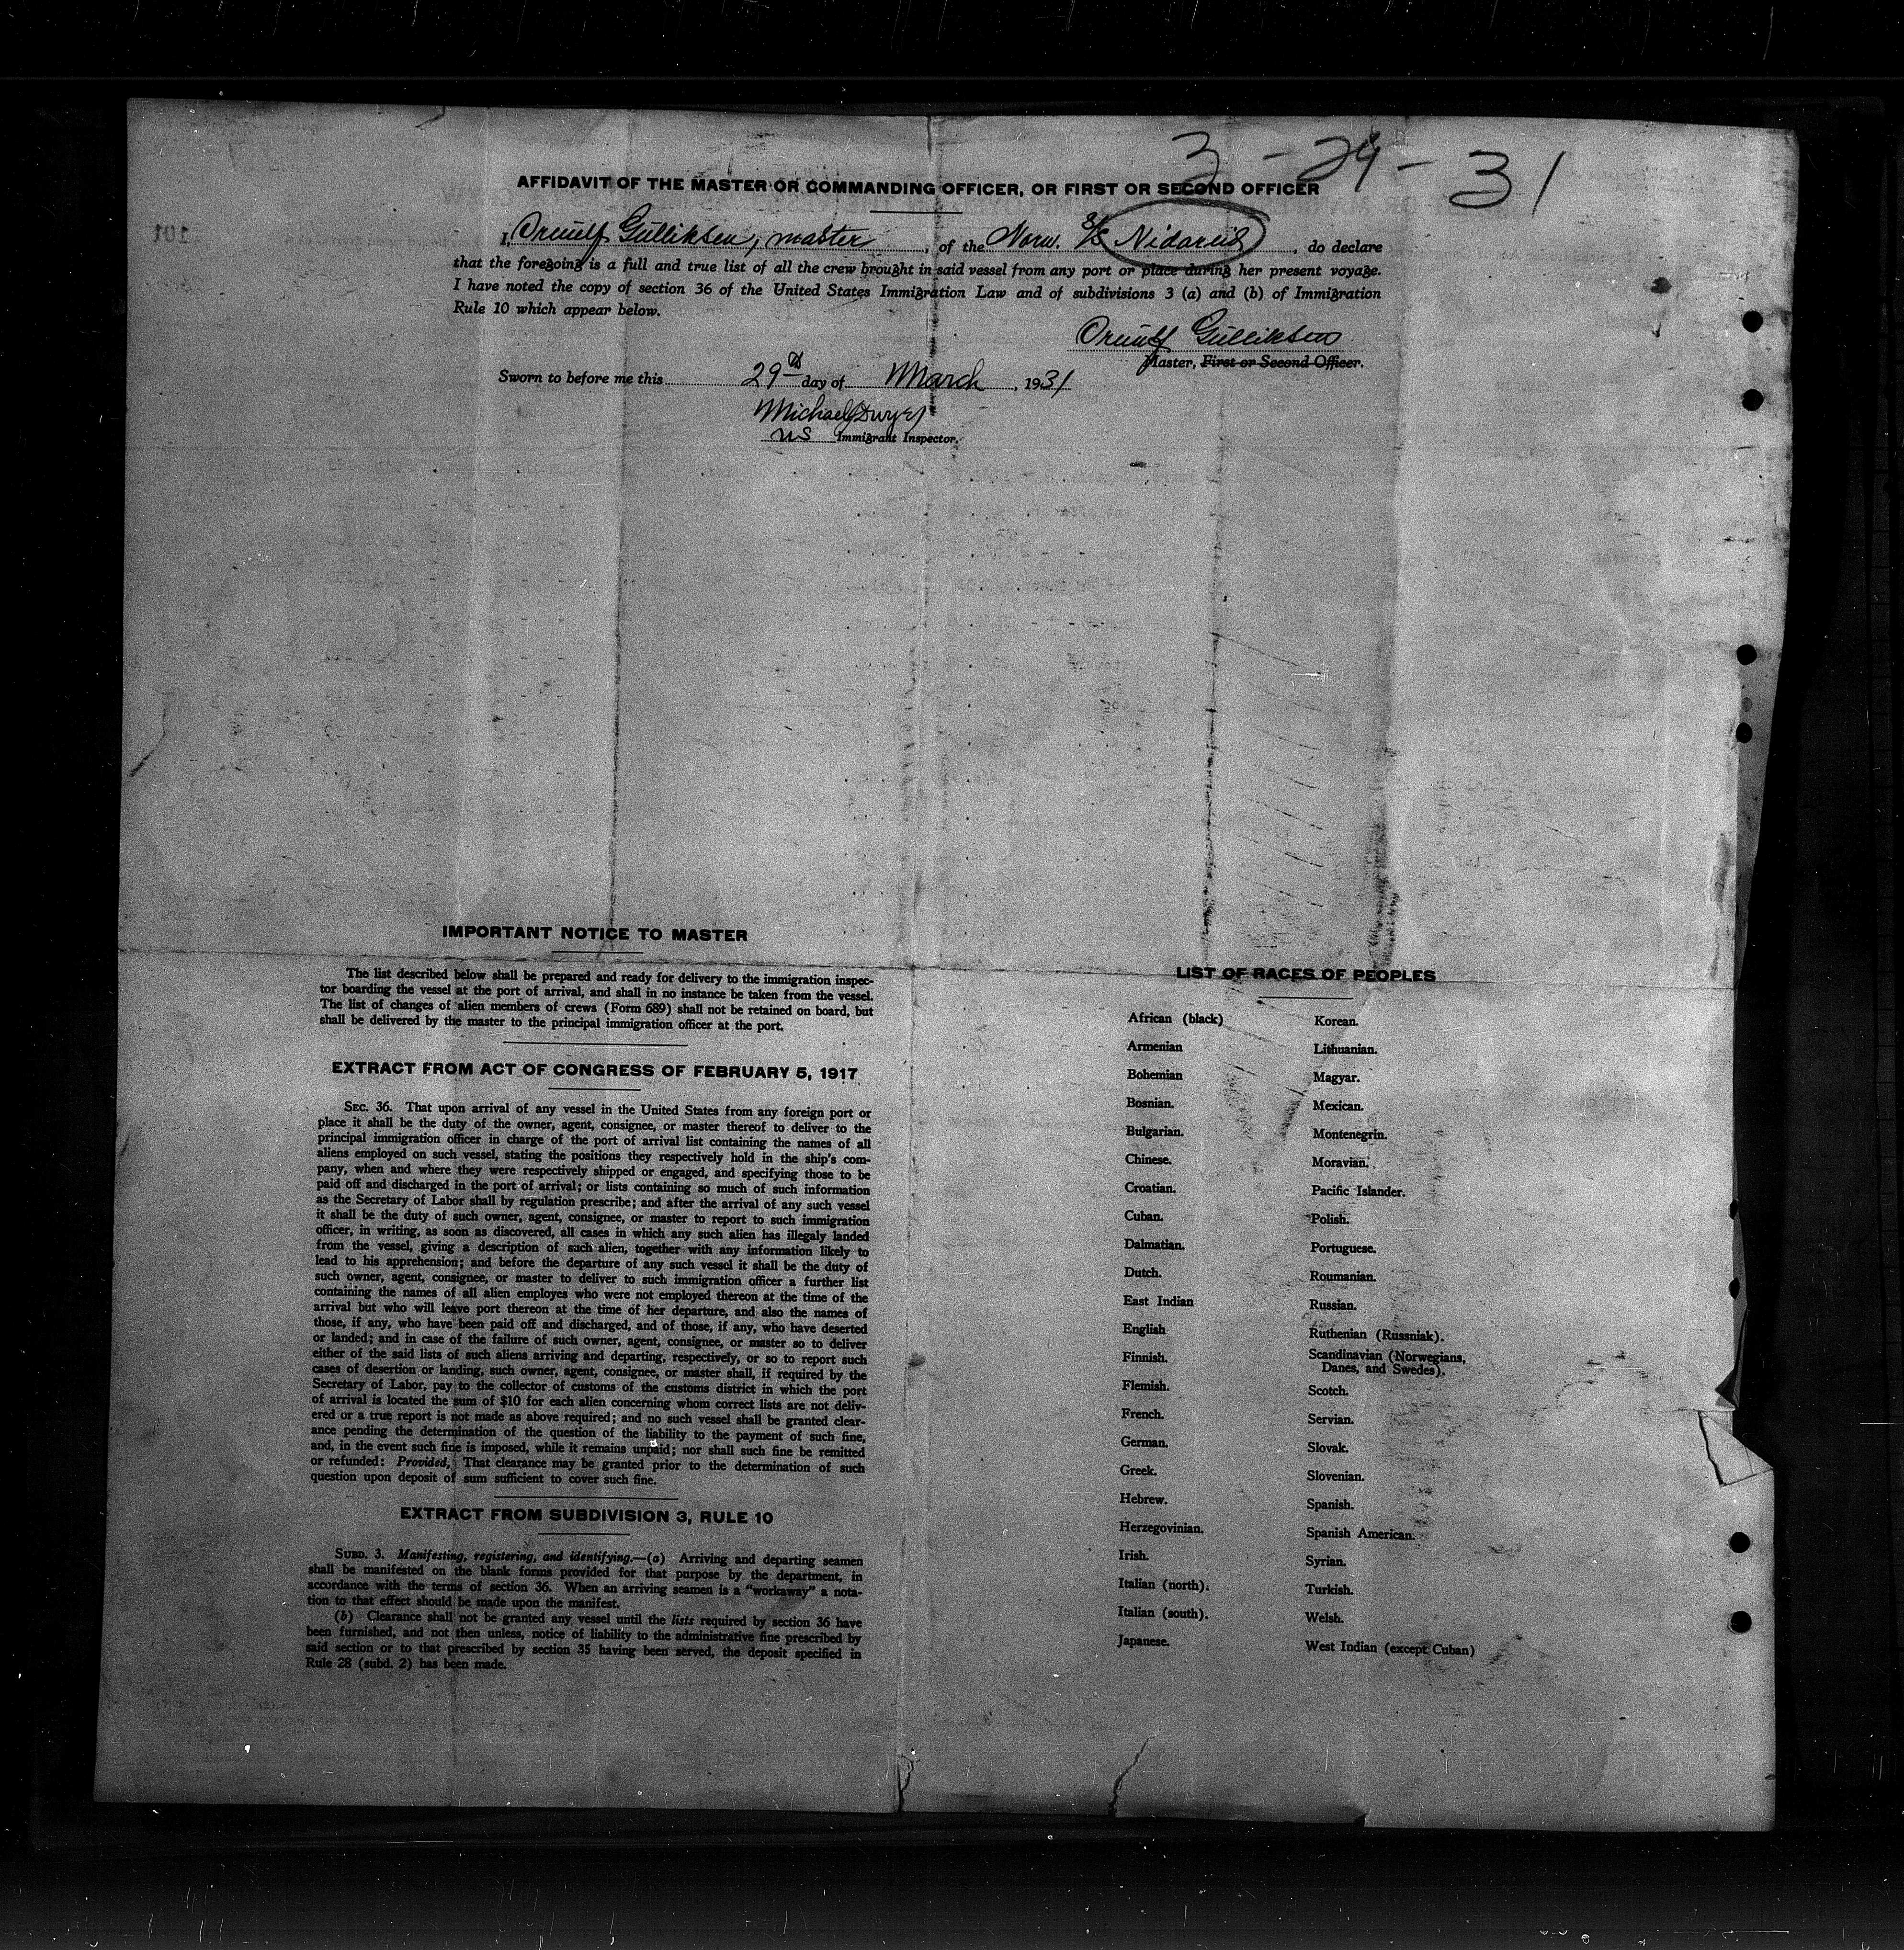 3-29-31
AFFIDAVIT OF THE MASTER OR COMMANDING OFFICER, OR FIRST OR SECOND OFFICER
I, Ornulf Gulliksen, master, of the Norw. S/S Nidareid, do declare
that the foregoing is a full and true list of all the crew brought in said vessel from any port or place during her present voyage.
I have noted the copy of section 36 of the United States Immigration Law and of subdivisions 3 (a) and (b) of Immigration
Rule 10 which appear below.
Ornulf Gulliksen
Master, First or Second Officer.
Sworn to before me this 29th day of March, 1931
Michael J Dwyer
US Immigrant Inspector.
101
IMPORTANT NOTICE TO MASTER
The list described below shall be prepared and ready for delivery to the immigration inspec-
tor boarding the vessel at the port of arrival, and shall in no instance be taken from the vessel.
The list of changes of alien members of crews (Form 689) shall not be retained on board, but
shall be delivered by the master to the principal immigration officer at the port.
EXTRACT FROM ACT OF CONGRESS OF FEBRUARY 5, 1917
SEC. 36. That upon arrival of any vessel in the United States from any foreign port or
place it shall be the duty of the owner, agent, consignee, or master thereof to deliver to the
principal immigration officer in charge of the port of arrival list containing the names of all
aliens employed on such vessel, stating the positions they respectively hold in the ship's com-
pany, when and where they were respectively shipped or engaged, and specifying those to be
paid off and discharged in the port of arrival; or lists containing so much of such information
as the Secretary of Labor shall by regulation prescribe; and after the arrival of any such vessel
it shall be the duty of such owner, agent, consignee, or master to report to such immigration
officer, in writing, as soon as discovered, all cases in which any such alien has illegaly landed
from the vessel, giving a description of such alien, together with any information likely to
lead to his apprehension; and before the departure of any such vessel it shall be the duty of
such owner, agent, consignee, or master to deliver to such immigration officer a further list
containing the names of all alien employes who were not employed thereon at the time of the
arrival but who will leave port thereon at the time of her departure, and also the names of
those, if any, who have been paid off and discharged, and of those, if any, who have deserted
or landed; and in case of the failure of such owner, agent, consignee, or master so to deliver
either of the said lists of such aliens arriving and departing, respectively, or so to report such
cases of desertion or landing, such owner, agent, consignee, or master shall, if required by the
Secretary of Labor, pay to the collector of customs of the customs district in which the port
of arrival is located the sum of $10 for each alien concerning whom correct lists are not deliv-
ered or a true report is not made as above required; and no such vessel shall be granted clear-
ance pending the determination of the question of the liability to the payment of such fine,
and, in the event such fine is imposed, while it remains unpaid; nor shall such fine be remitted
or refunded: Provided, That clearance may be granted prior to the determination of such
question upon deposit of sum sufficient to cover such fine.
EXTRACT FROM SUBDIVISION 3, RULE 10
SUBD. 3. Manifesting, registering, and identifying.—(a) Arriving and departing seamen
shall be manifested on the blank forms provided for that purpose by the department, in
accordance with the terms of section 36. When an arriving seamen is a "workaway" a nota-
tion to that effect should be made upon the manifest.
(b) Clearance shall not be granted any vessel until the lists required by section 36 have
been furnished, and not then unless, notice of liability to the administrative fine prescribed by
said section or to that prescribed by section 35 having been served, the deposit specified in
Rule 28 (subd. 2) has been made.
LIST OF RACES OF PEOPLES
African (black)
Armenian
Bohemian
Bosnian.
Bulgarian.
Chinese.
Croatian.
Cuban.
Dalmatian.
Dutch.
East Indian
English
Finnish.
Flemish.
French.
German.
Greek.
Hebrew.
Herzegovinian.
Irish.
Italian (north).
Italian (south).
Japanese.
Korean.
Lithuanian.
Magyar.
Mexican.
Montenegrin.
Moravian.
Pacific Islander.
Polish.
Portuguese.
Roumanian.
Russian.
Ruthenian (Russniak).
Scandinavian (Norwegians,
Danes, and Swedes).
Scotch.
Servian.
Slovak.
Slovenian.
Spanish.
Spanish American.
Syrian.
Turkish.
Welsh.
West Indian (except Cuban)